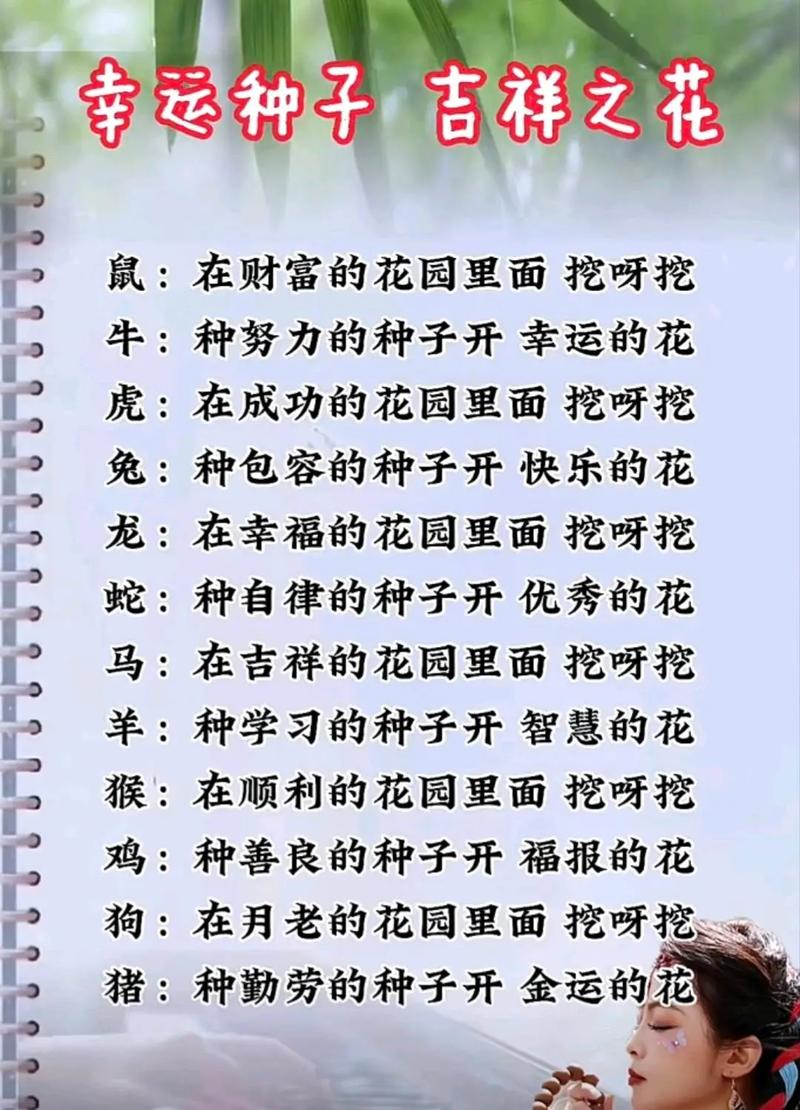 幸运种子 吉祥之花
鼠：在财富的花园里面 挖呀挖
牛：种努力的种子开 幸运的花
虎：在成功的花园里面 挖呀挖
兔：种包容的种子开 快乐的花
龙：在幸福的花园里面 挖呀挖
蛇：种自律的种子开 优秀的花
马：在吉祥的花园里面 挖呀挖
羊：种学习的种子开 智慧的花
猴：在顺利的花园里面 挖呀挖
鸡：种善良的种子开 福报的花
狗：在月老的花园里面 挖呀挖
猪：种勤劳的种子开 金运的花